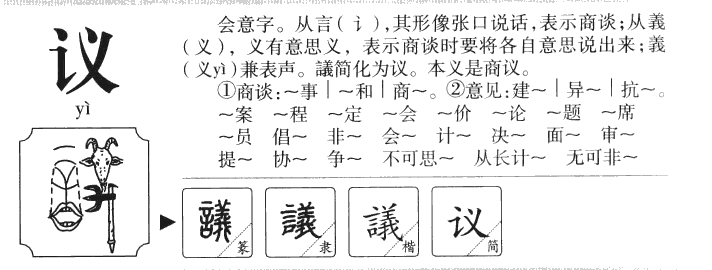 议
yì
会意字。从言(讠),其形像张口说话,表示商谈;从義
(义)，义有意思义，表示商谈时要将各自意思说出来;義
(义yì)兼表声。議简化为议。本义是商议。
①商谈:～事｜～和｜商～。②意见:建～｜异～｜抗～。
～案 ～程 ～定 ～会 ～价 ～论 ～题 ～席
～员 倡～ 非～ 会～ 计～ 决～ 面～ 审～
提～ 协～ 争～ 不可思～ 从长计～ 无可非～
議 篆
議 隶
議 楷
议 简